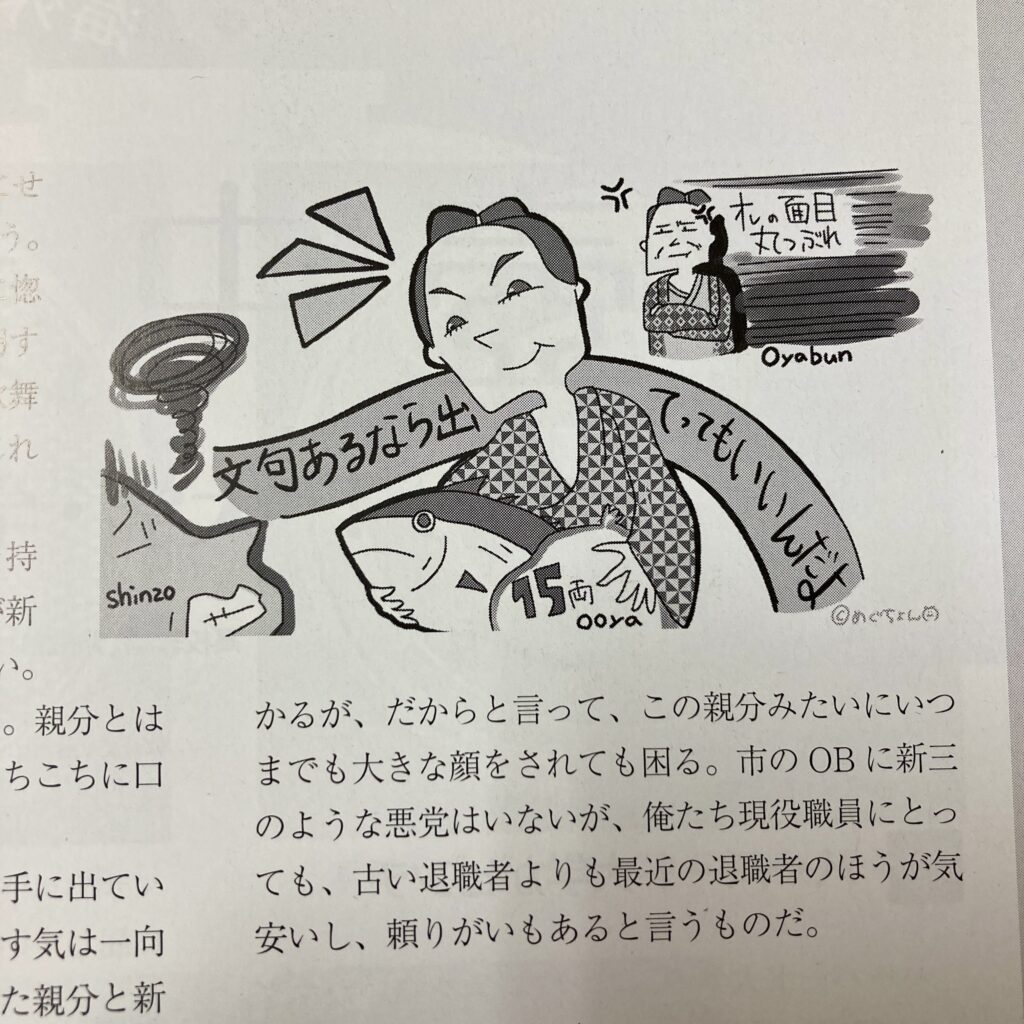 オレの面目
丸つぶれ
Oyabun
文句あるなら出
てってもいいんだよ
shinzo
15両
ooya
©めぐちょん
せ
う。
惚
す
舞
れ
持
新
い。
。親分とは
ちこちに口
手に出てい
す気は一向
た親分と新
かるが、だからと言って、この親分みたいにいつ
までも大きな顔をされても困る。市のOBに新三
のような悪党はいないが、俺たち現役職員にとっ
ても、古い退職者よりも最近の退職者のほうが気
安いし、頼りがいもあると言うものだ。